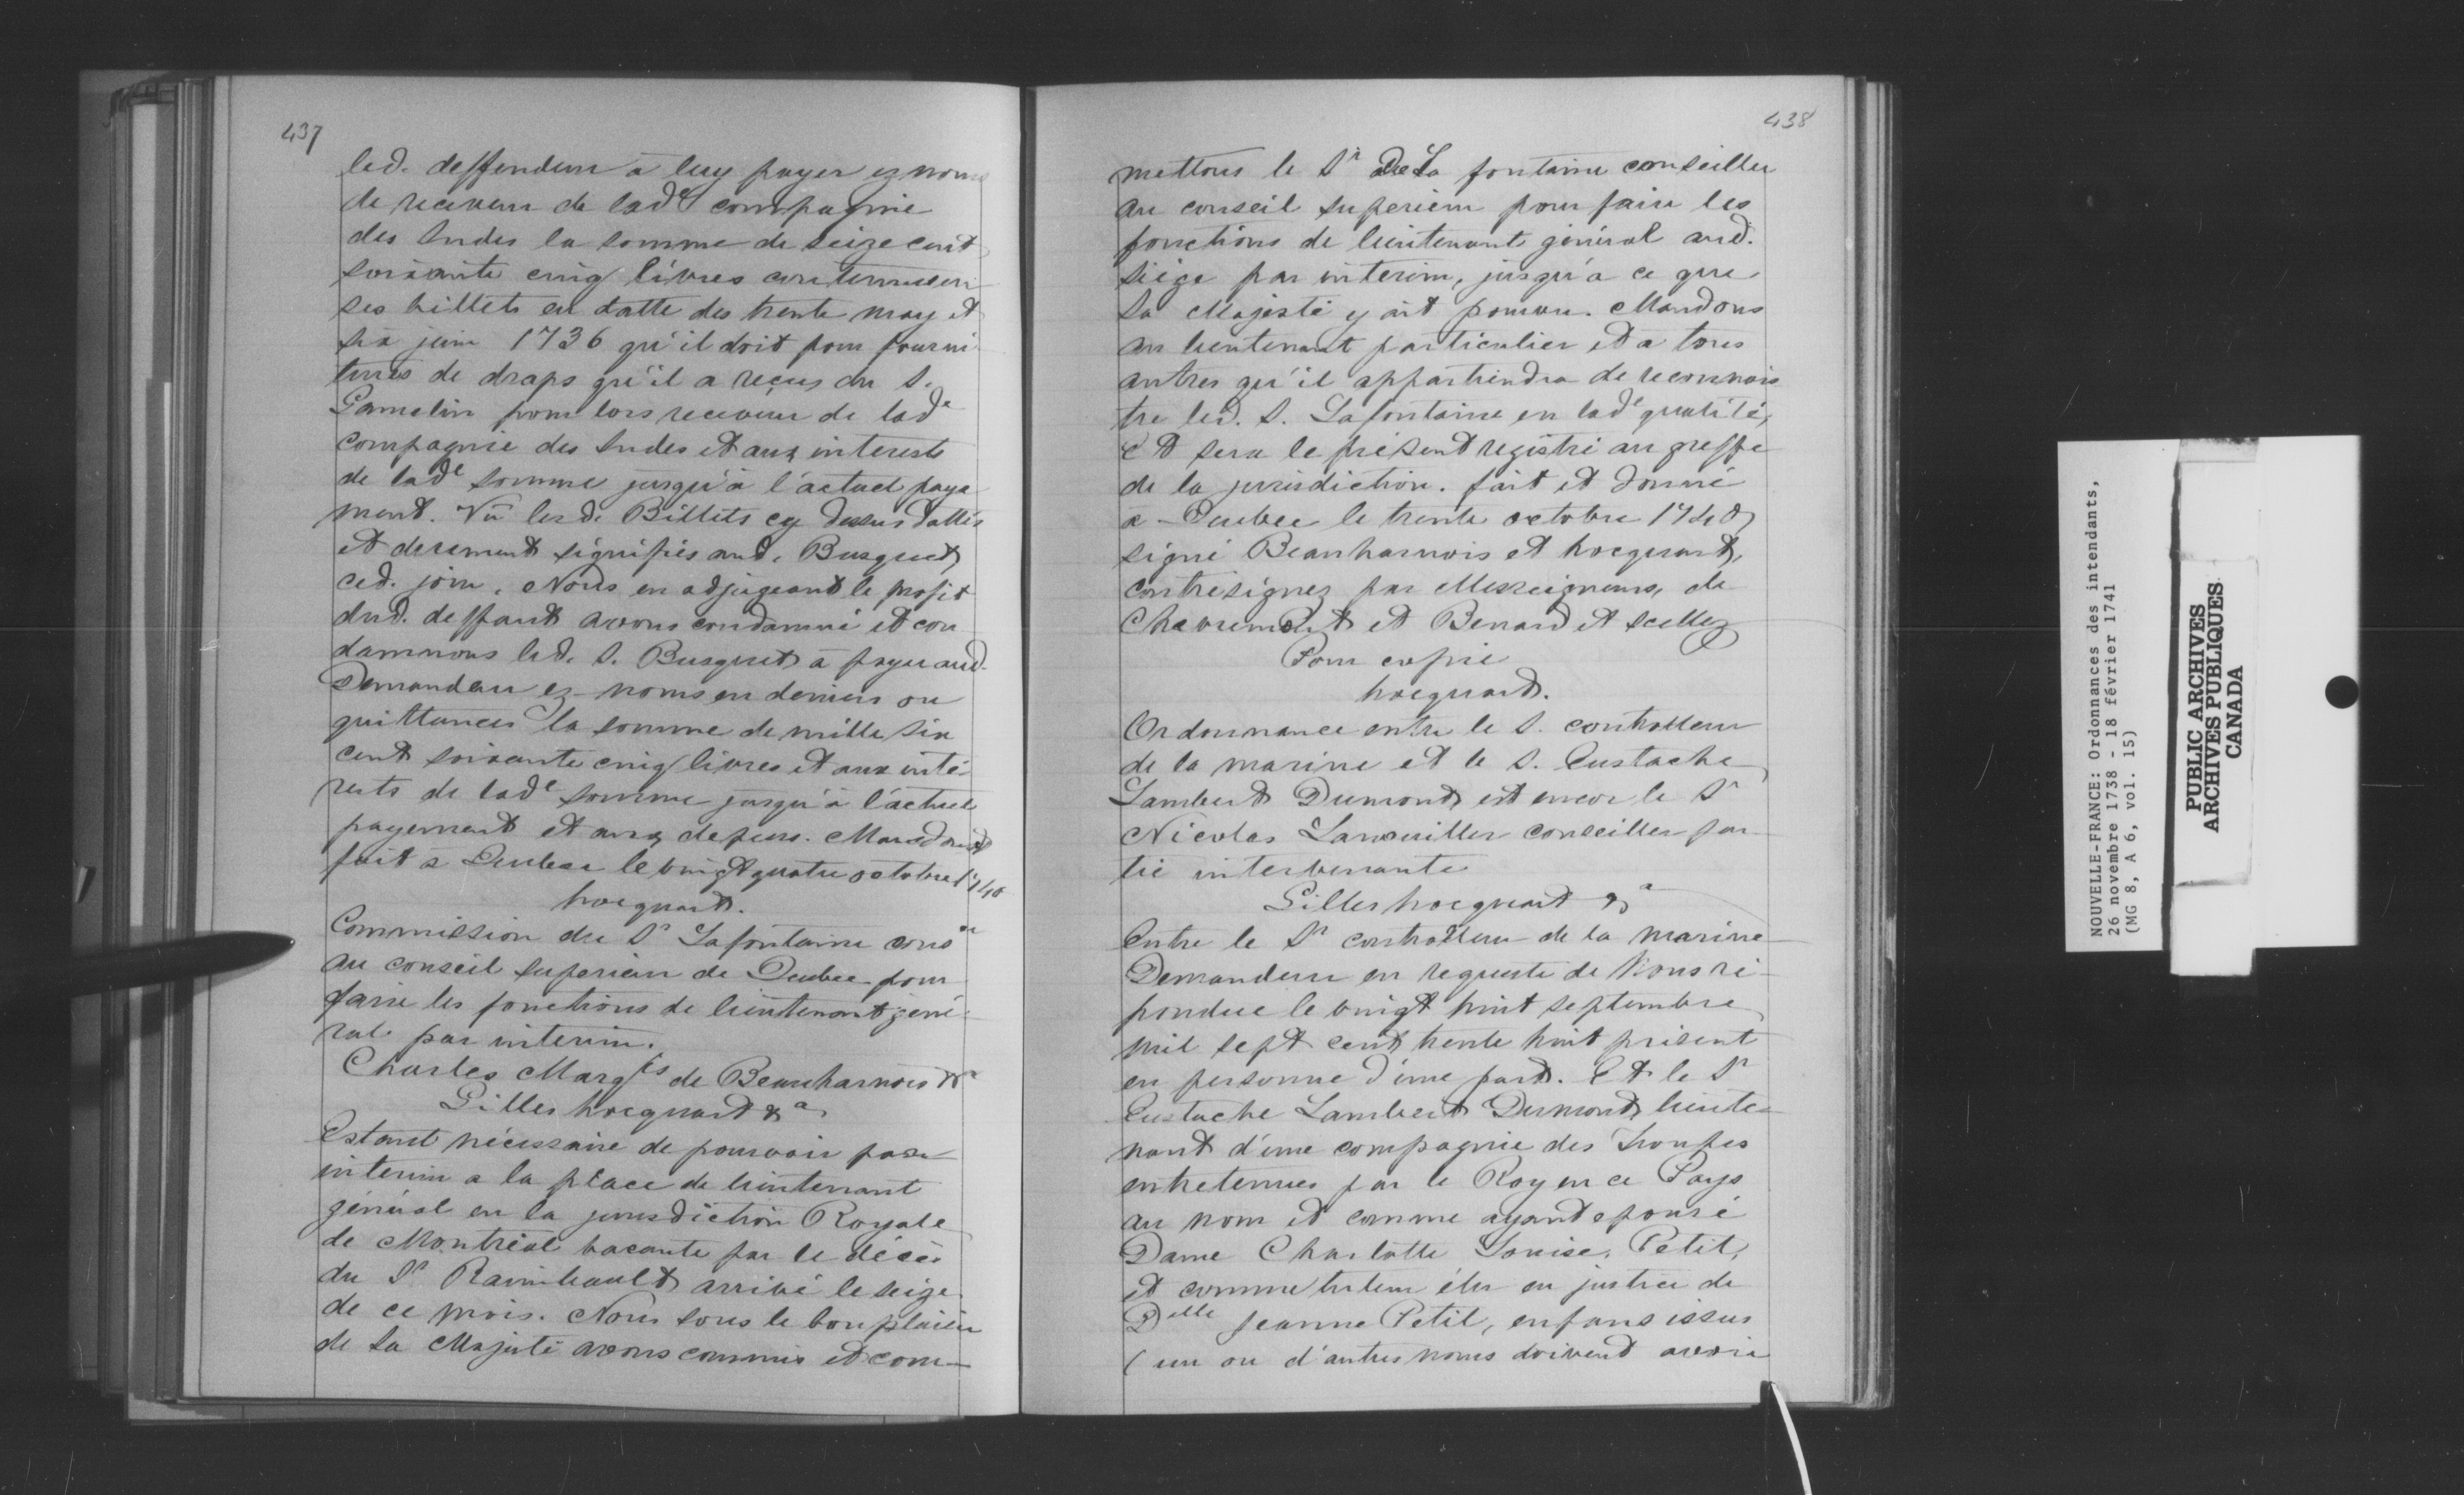 437
led. deffendeur a luy payer ez noms
de receveur de lad.e compagnie
des Indes la somme de seize cent
soixante cinq livres contenues en
ses billets en datte des trente may et
six juin 1736 qu'il doit pour fourni-
tures de draps qu'il a reçus du S.
Gamelin pour lors receveur de lade
compagnie des Indes et aux interests
de lade somme jusqu'à l'actuel paye
ment. Vu lesd. Billets cy dessus dattés
et deuement signifiés aud. Busquet
ced. jour. Nous en adjugeant le profit
dud. deffaut avons condamné et con
damnons led. S. Busquet à payer aud.
Demandeur ez noms en deniers ou
quittances la somme de mille six
cent soixante cinq livres et aux inté-
rests de lade somme jusqu'à l'actuel
payement et aux depens. Mandons
fait à Quebec le vingt quatre octobre 1740
hocquart.
Commission du Sr Lafontaine conser
au conseil superieur de Quebec pour
faire les fonctions de lieutenant géné-
ral par interim.
Charles Marqis de Beauharnois &a
Gilles hocquart &a
Estant nécessaire de pourvoir par
interim a la place de lieutenant
général en la jurisdiction Royale
de Montréal vacante par le décès
du Sr Raimbault arrivé le seize
de ce mois. Nous sous le bon plaisir
de Sa Majesté avons commis et com-
438
mettons le Sr De La fontaine conseiller
au conseil superieur pour faire les
fonctions de lieutenant général aud.
siège par interim, jusqu'a ce que
Sa Majesté y ait pourvu. Mandons
au lieutenant particulier et a tous
autres qu'il appartiendra de reconnois
tre led. S. Lafontaine en lade qualité,
Et sera le présent registré au greffe
de la jurisdiction. fait et donné
a Quebec le trente octobre 1740
signé Beauharnois et hocquart,
contresignez par Messeigneurs, de
Chevremont et Benard et scellez
Pour copie
hocquart.
Ordonnance entre le S. controlleur
de la marine et le S. Eustache
Lambert Dumont, et encor le Sr
Nicolas Lanouiller conseiller par
tie intervenante
Gilles hocquart &a
Entre le Sr controlleur de la marine
Demandeur en requeste de Nous ré-
pondue le vingt huit septembre
mil sept cent trente huit présent
en personne d'une part. Et le Sr
Eustache Lambert Dumont, lieute-
nant d'une compagnie des Troupes
entretenues par le Roy en ce Pays
au nom et comme ayant epousé
Dame Charlotte Louise, Petit,
et comme tuteur élu en justice de
Delle Jeanne Petit, enfans issus
(un ou d'autres noms doivent avoir
NOUVELLE-FRANCE: Ordonnances des intendants,
26 novembre 1738 - 18 février 1741
(MG 8, A 6, vol. 15)
PUBLIC ARCHIVES
ARCHIVES PUBLIQUES
CANADA